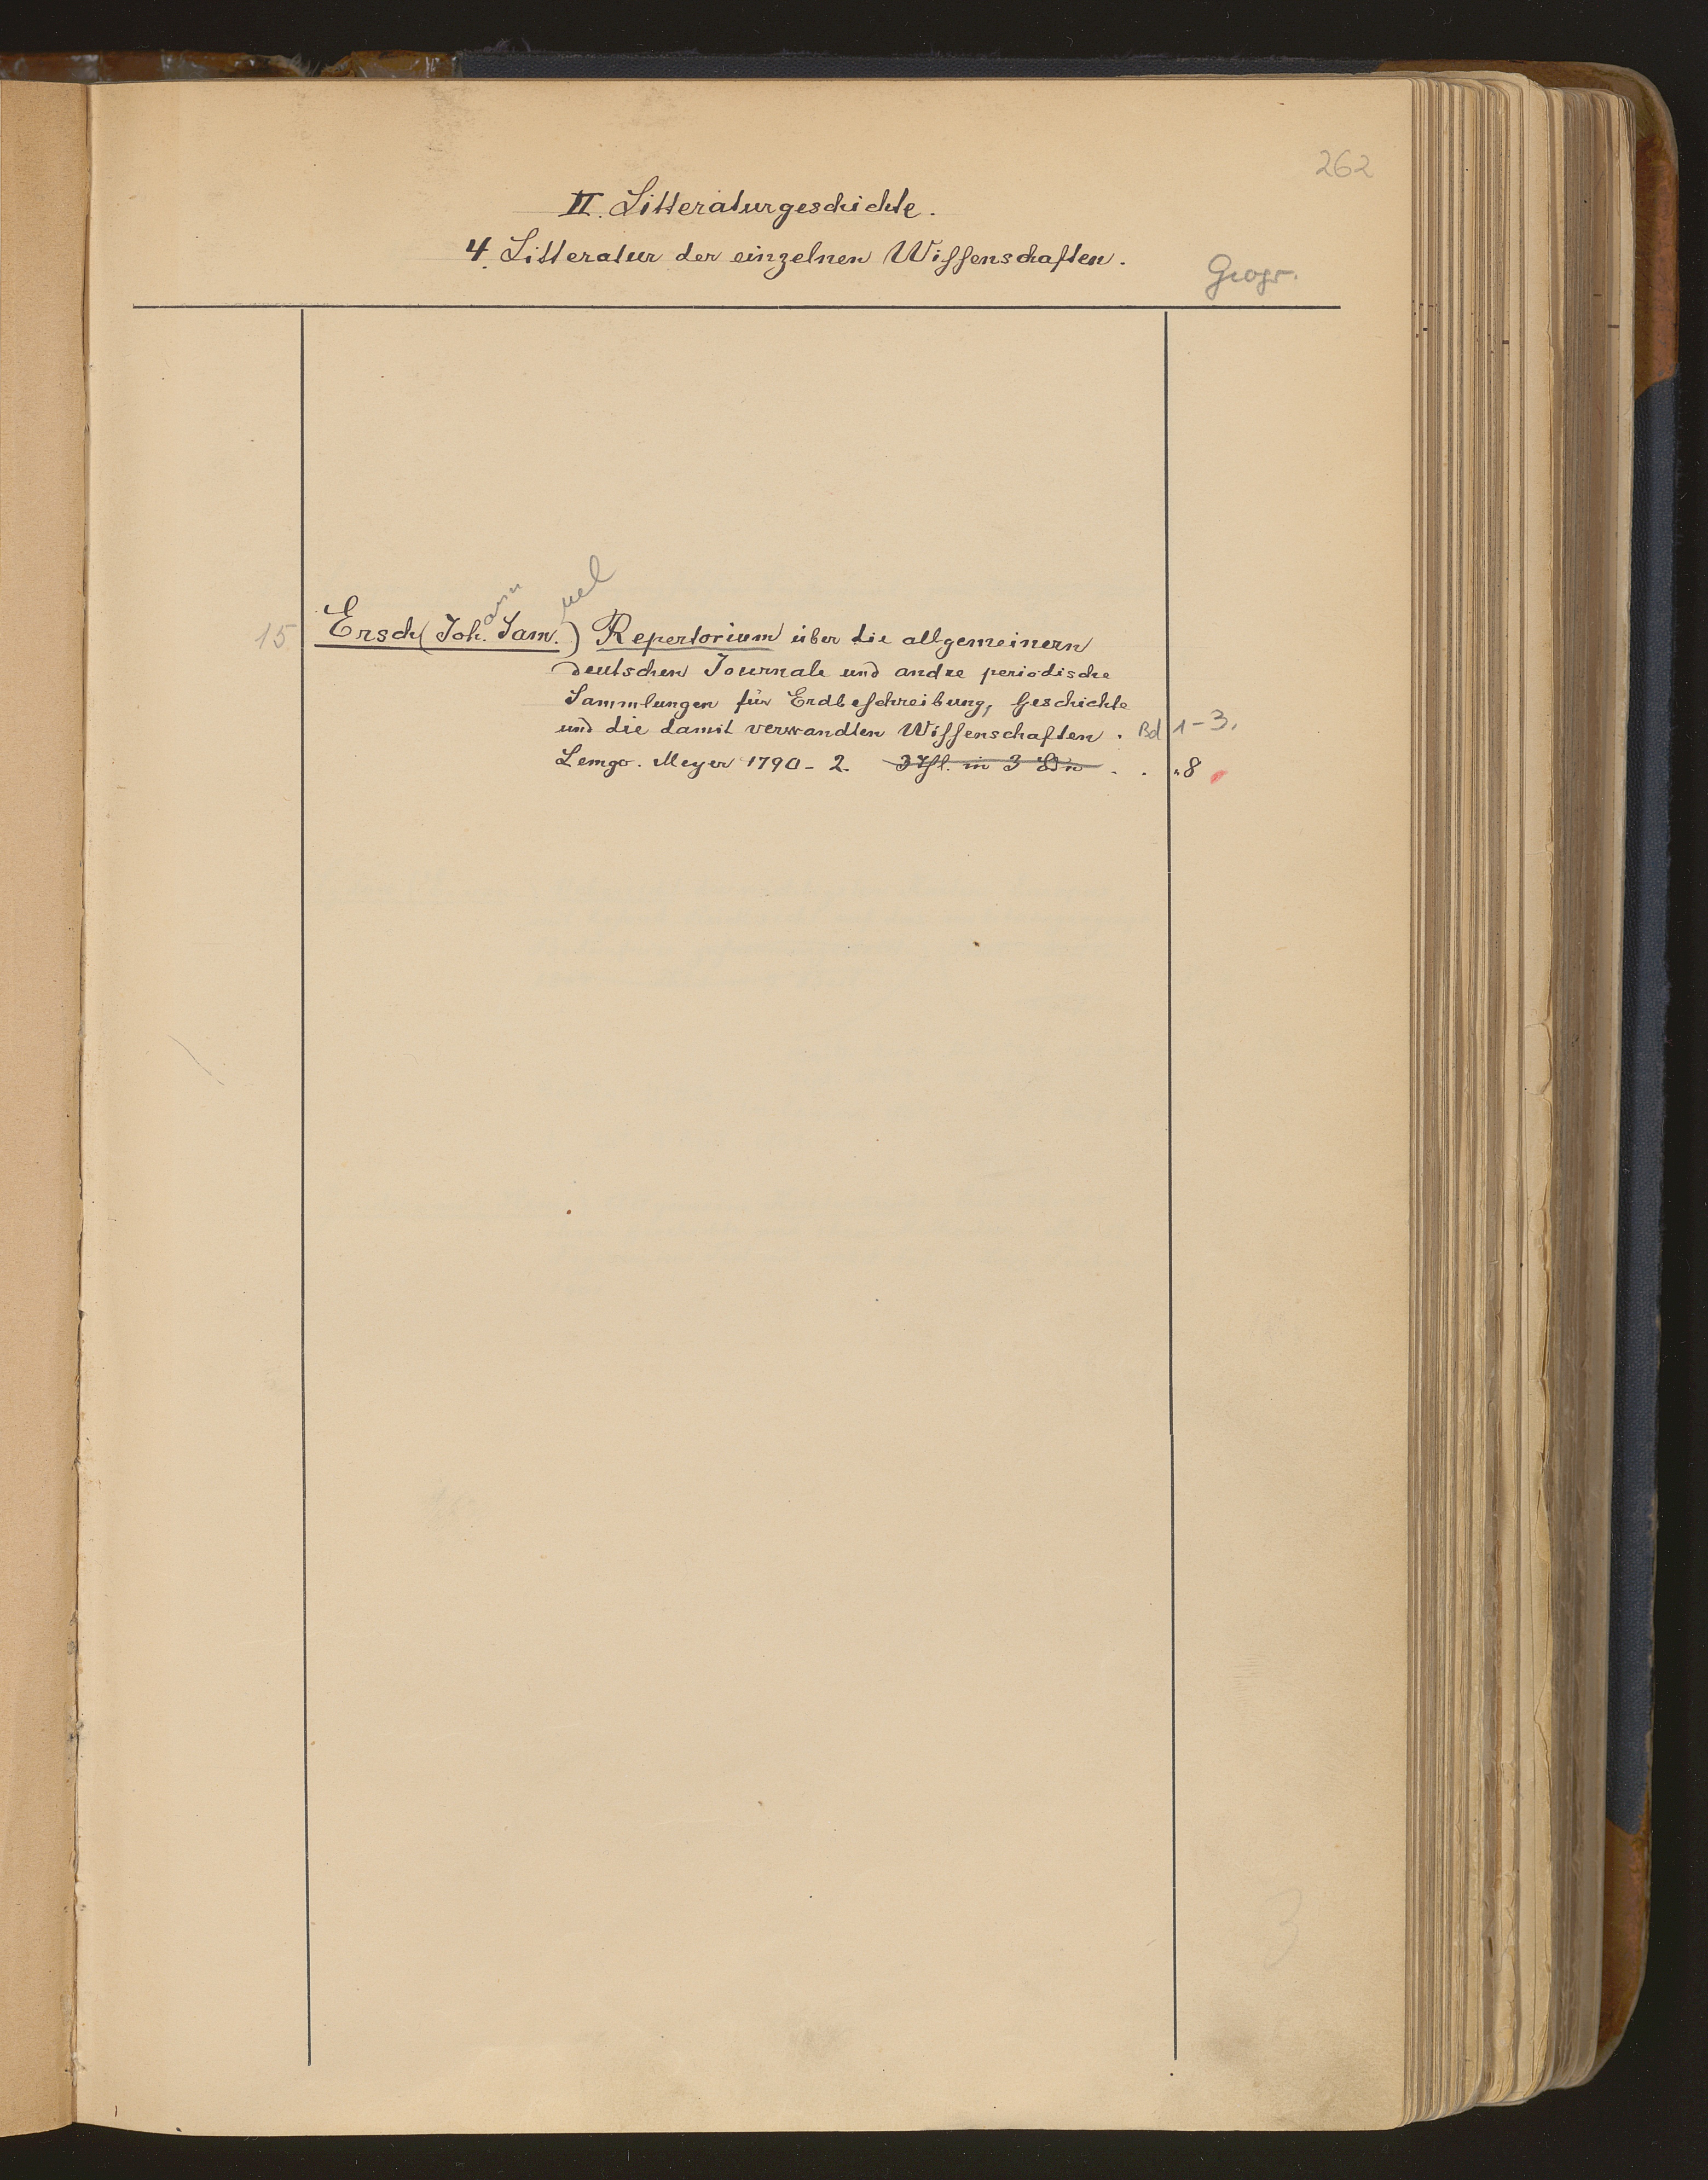 262
II. Litteraturgeschichte.
4. Litteratur der einzelnen Wissenschaften.
Geogr.
ann uel
15 Ersch (Joh. Sam.) Repertorium über die allgemeinern
deutschen Journale und andre periodische
Sammlungen für Erdbeschreibung, Geschichte
und die damit verwandten Wissenschaften. Bd 1-3.
Lemgo. Meyer 1790-2. 3 Thl. in 3 Bdn . . "8
3